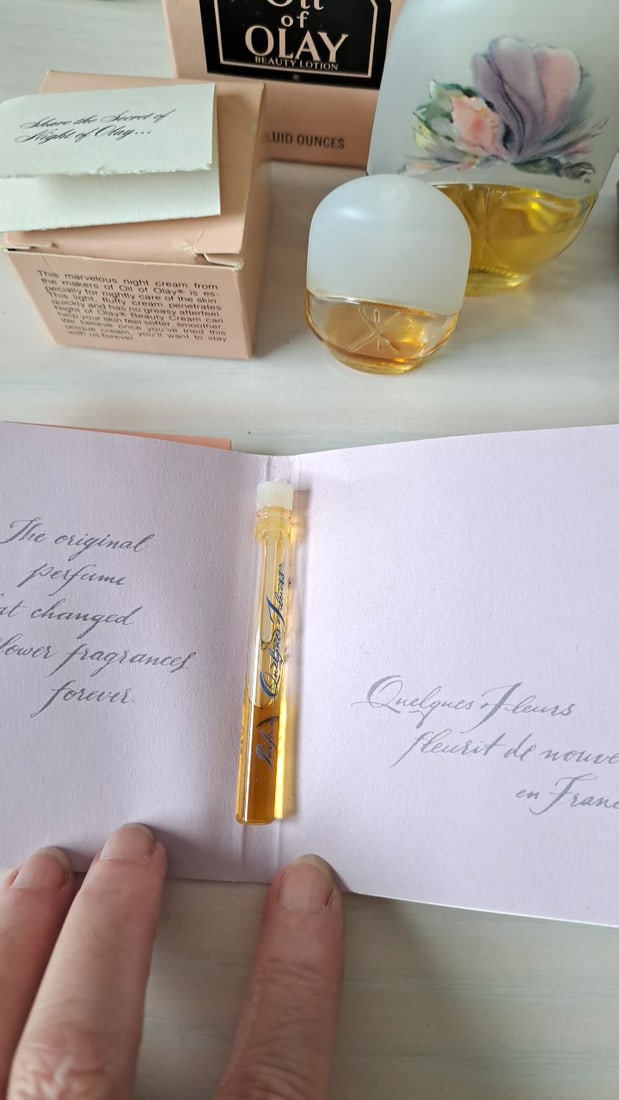 Oil
of
OLAY
BEAUTY LOTION
®
UID OUNCES
Share the Secret of
Night of Olay...
This marvelous night cream from
the makers of Oil of Olay® is es-
pecially for nightly care of the skin.
This light, fluffy cream penetrates
quickly and has no greasy afterfeel.
Night of Olay® Beauty Cream can
help your skin feel softer, smoother.
We believe once you've tried this
unique cream, you'll want to stay
with us forever.
The original
perfume
at changed
lower fragrances
forever.
Quelques Fleurs
Quelques Fleurs
fleurit de nouve
en Fran